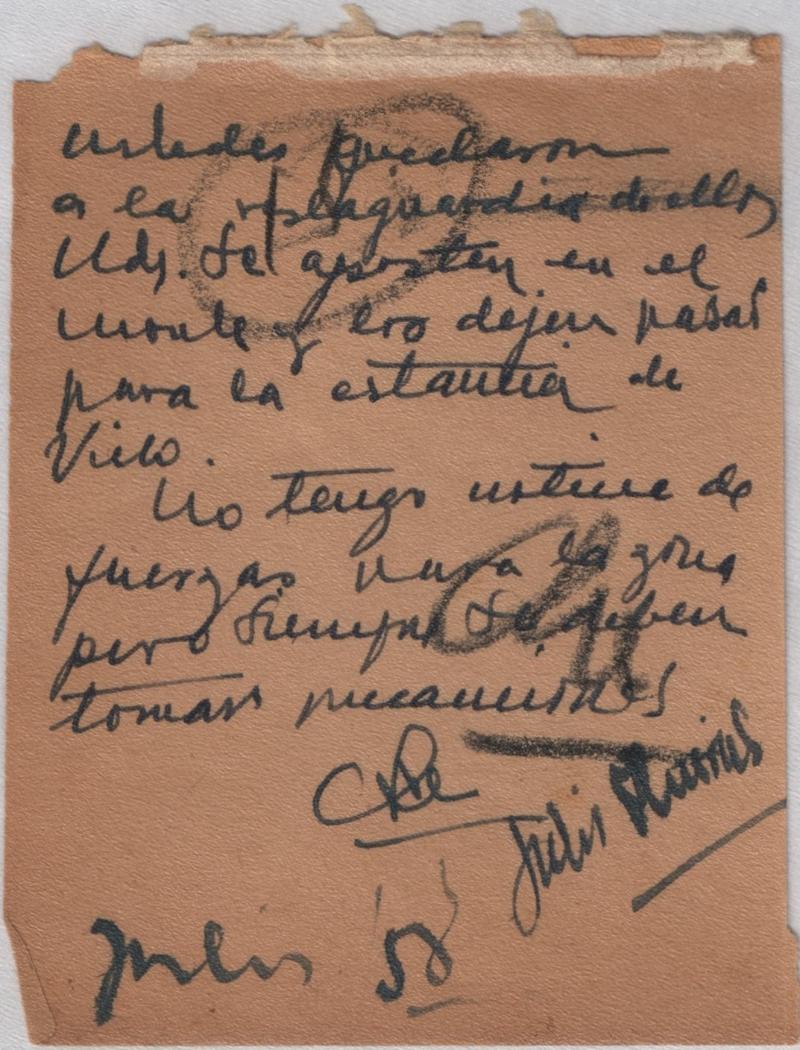 ustedes quedaron
a la retaguardia de ellos
Uds. se aposten en el
monte y los dejen pasar
para la estancia de
Vilo.
No tengo noticia de
fuerzas para la zona
pero siempre se deben
tomar precauciones
Che
Julio
Julio 58